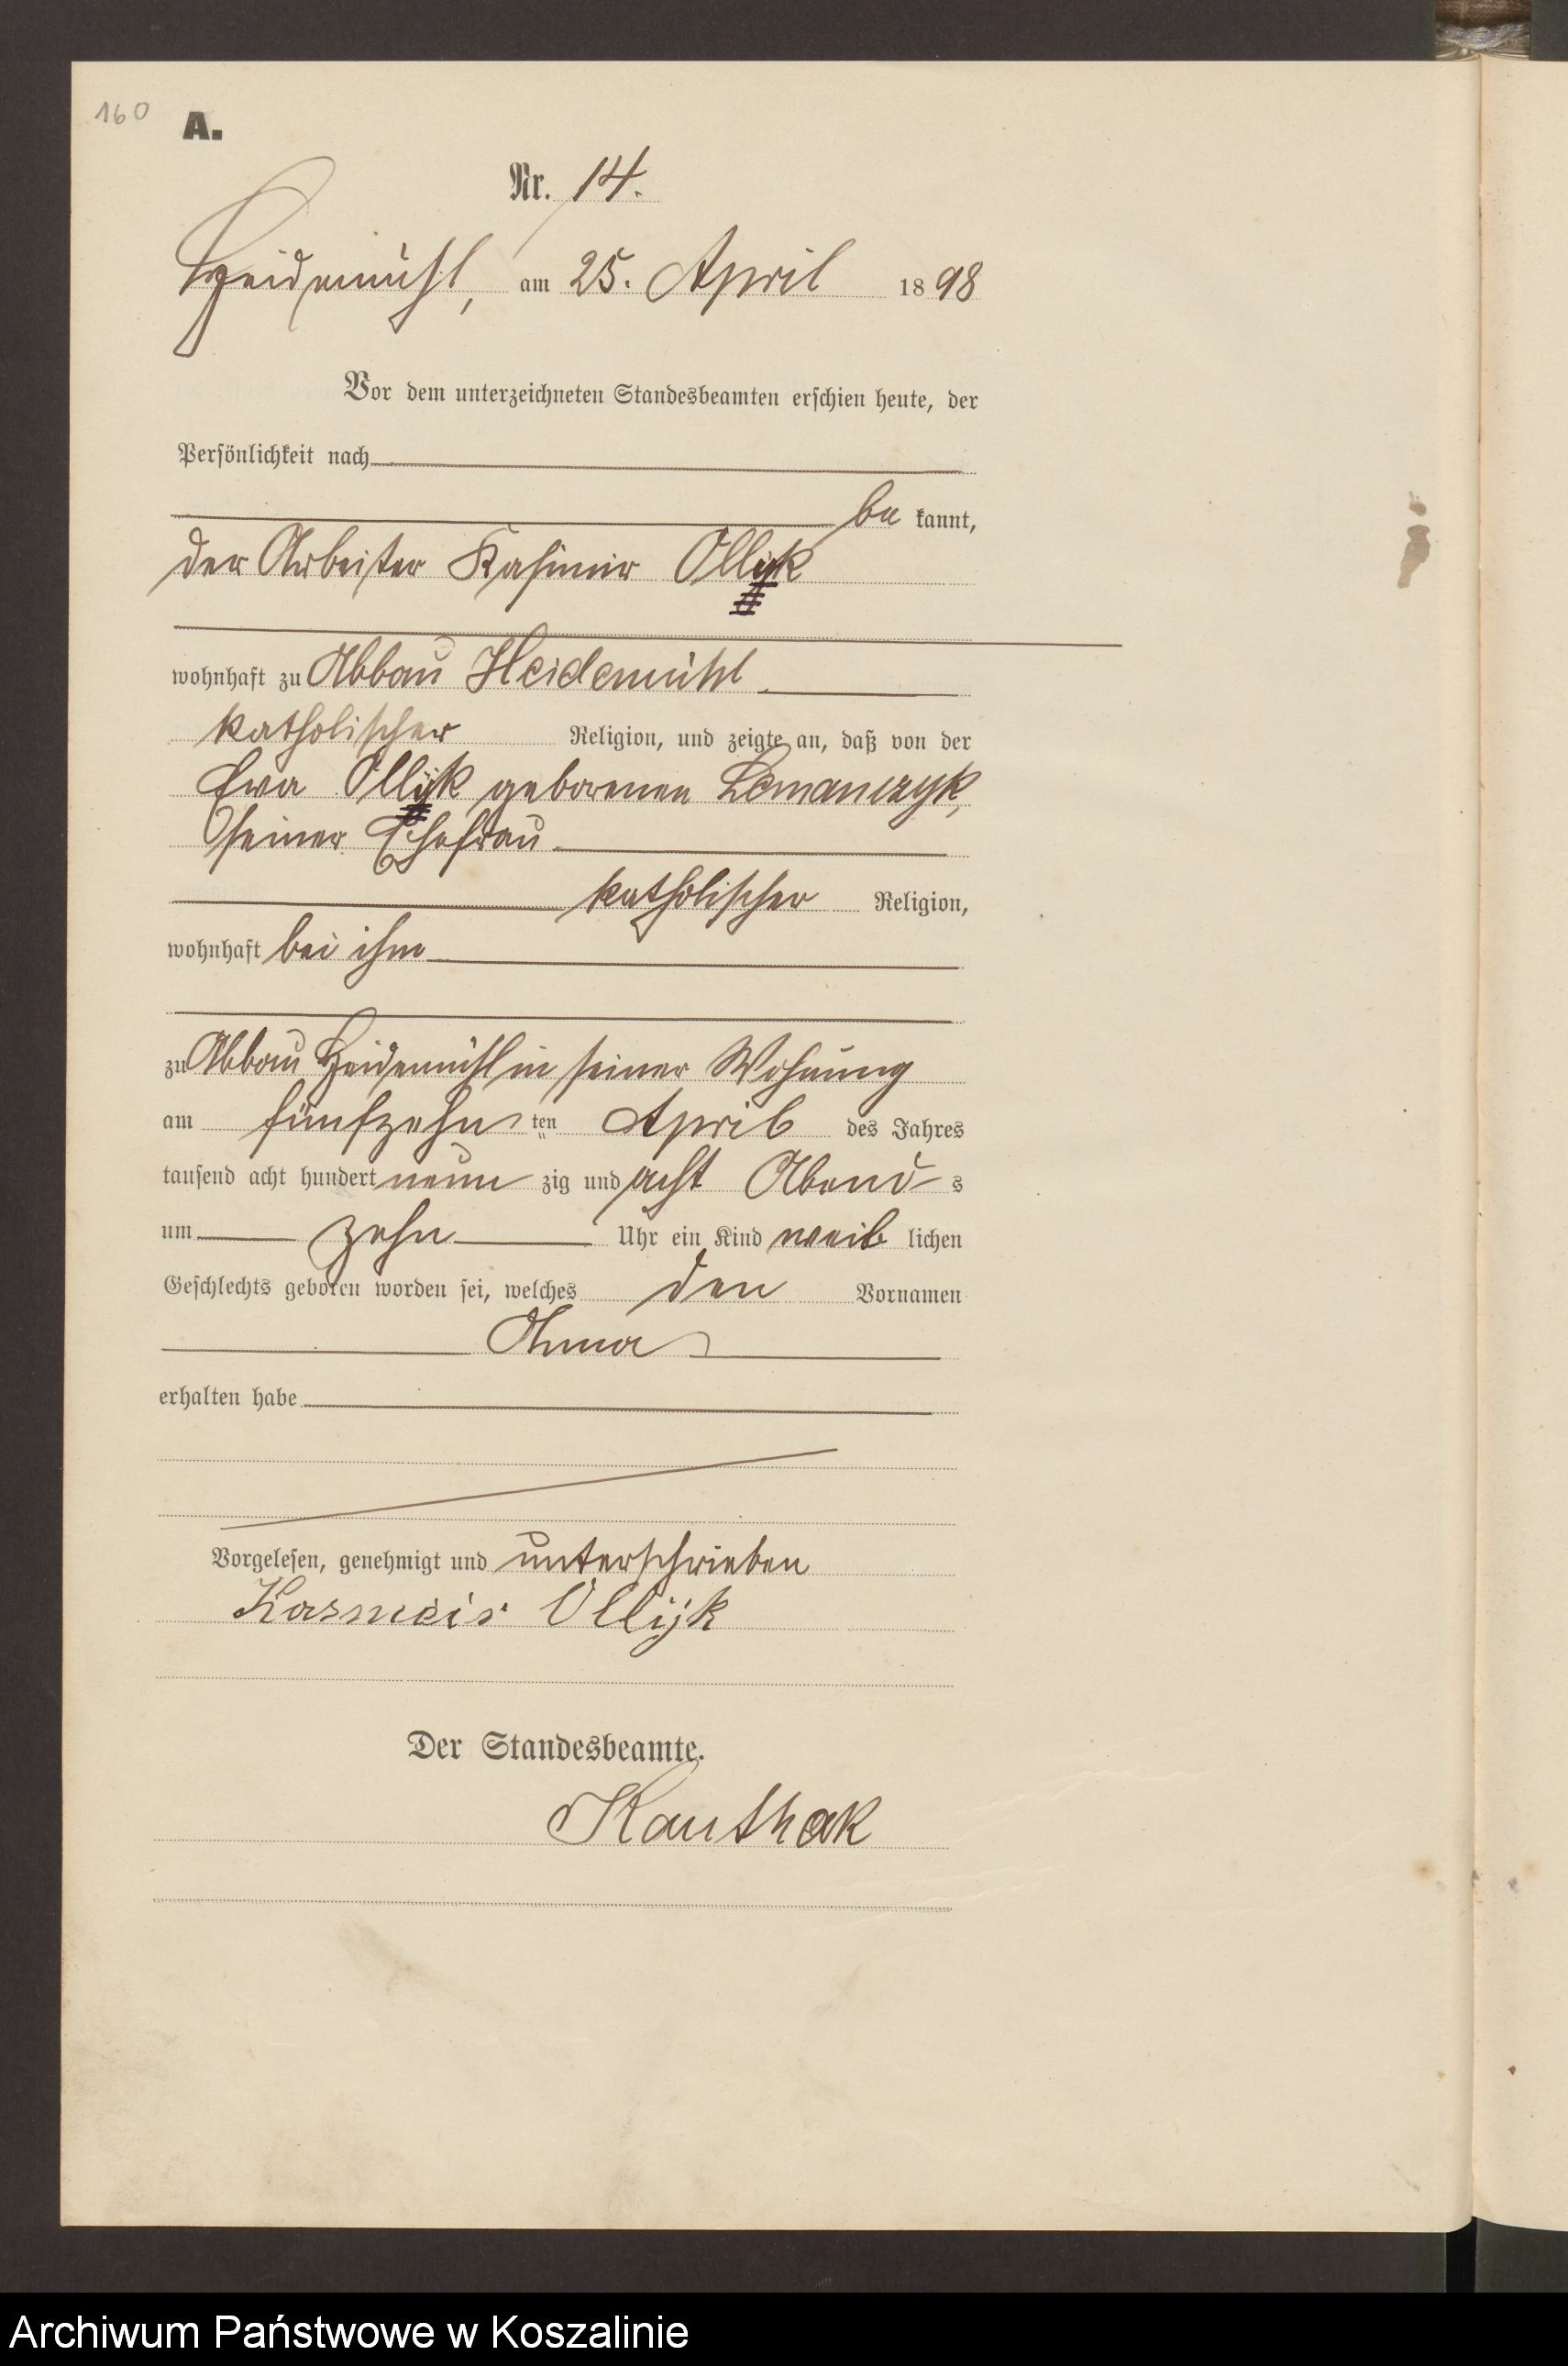 160
A.
Nr. 14.
Heidemühl, am 25. April 1898
Vor dem unterzeichneten Standesbeamten erschien heute, der
Persönlichkeit nach
be kannt,
der Arbeiter Kasimir Ollik
wohnhaft zu Abbau Heidemühl
katholischer Religion, und zeigte an, daß von der
Ewa Ollik geborenen Lemanczyk,
seiner Ehefrau
katholischer Religion,
wohnhaft bei ihm
zu Abbau Heidemühl in seiner Wohnung
am fünfzehn ten April des Jahres
tausend acht hundert neun zig und acht Abend s
um zehn Uhr ein Kind weib lichen
Geschlechts geboren worden sei, welches den Vornamen
Anna
erhalten habe
Vorgelesen, genehmigt und unterschrieben
Ollijk
Der Standesbeamte.
Kauthak
Archiwum Państwowe w Koszalinie